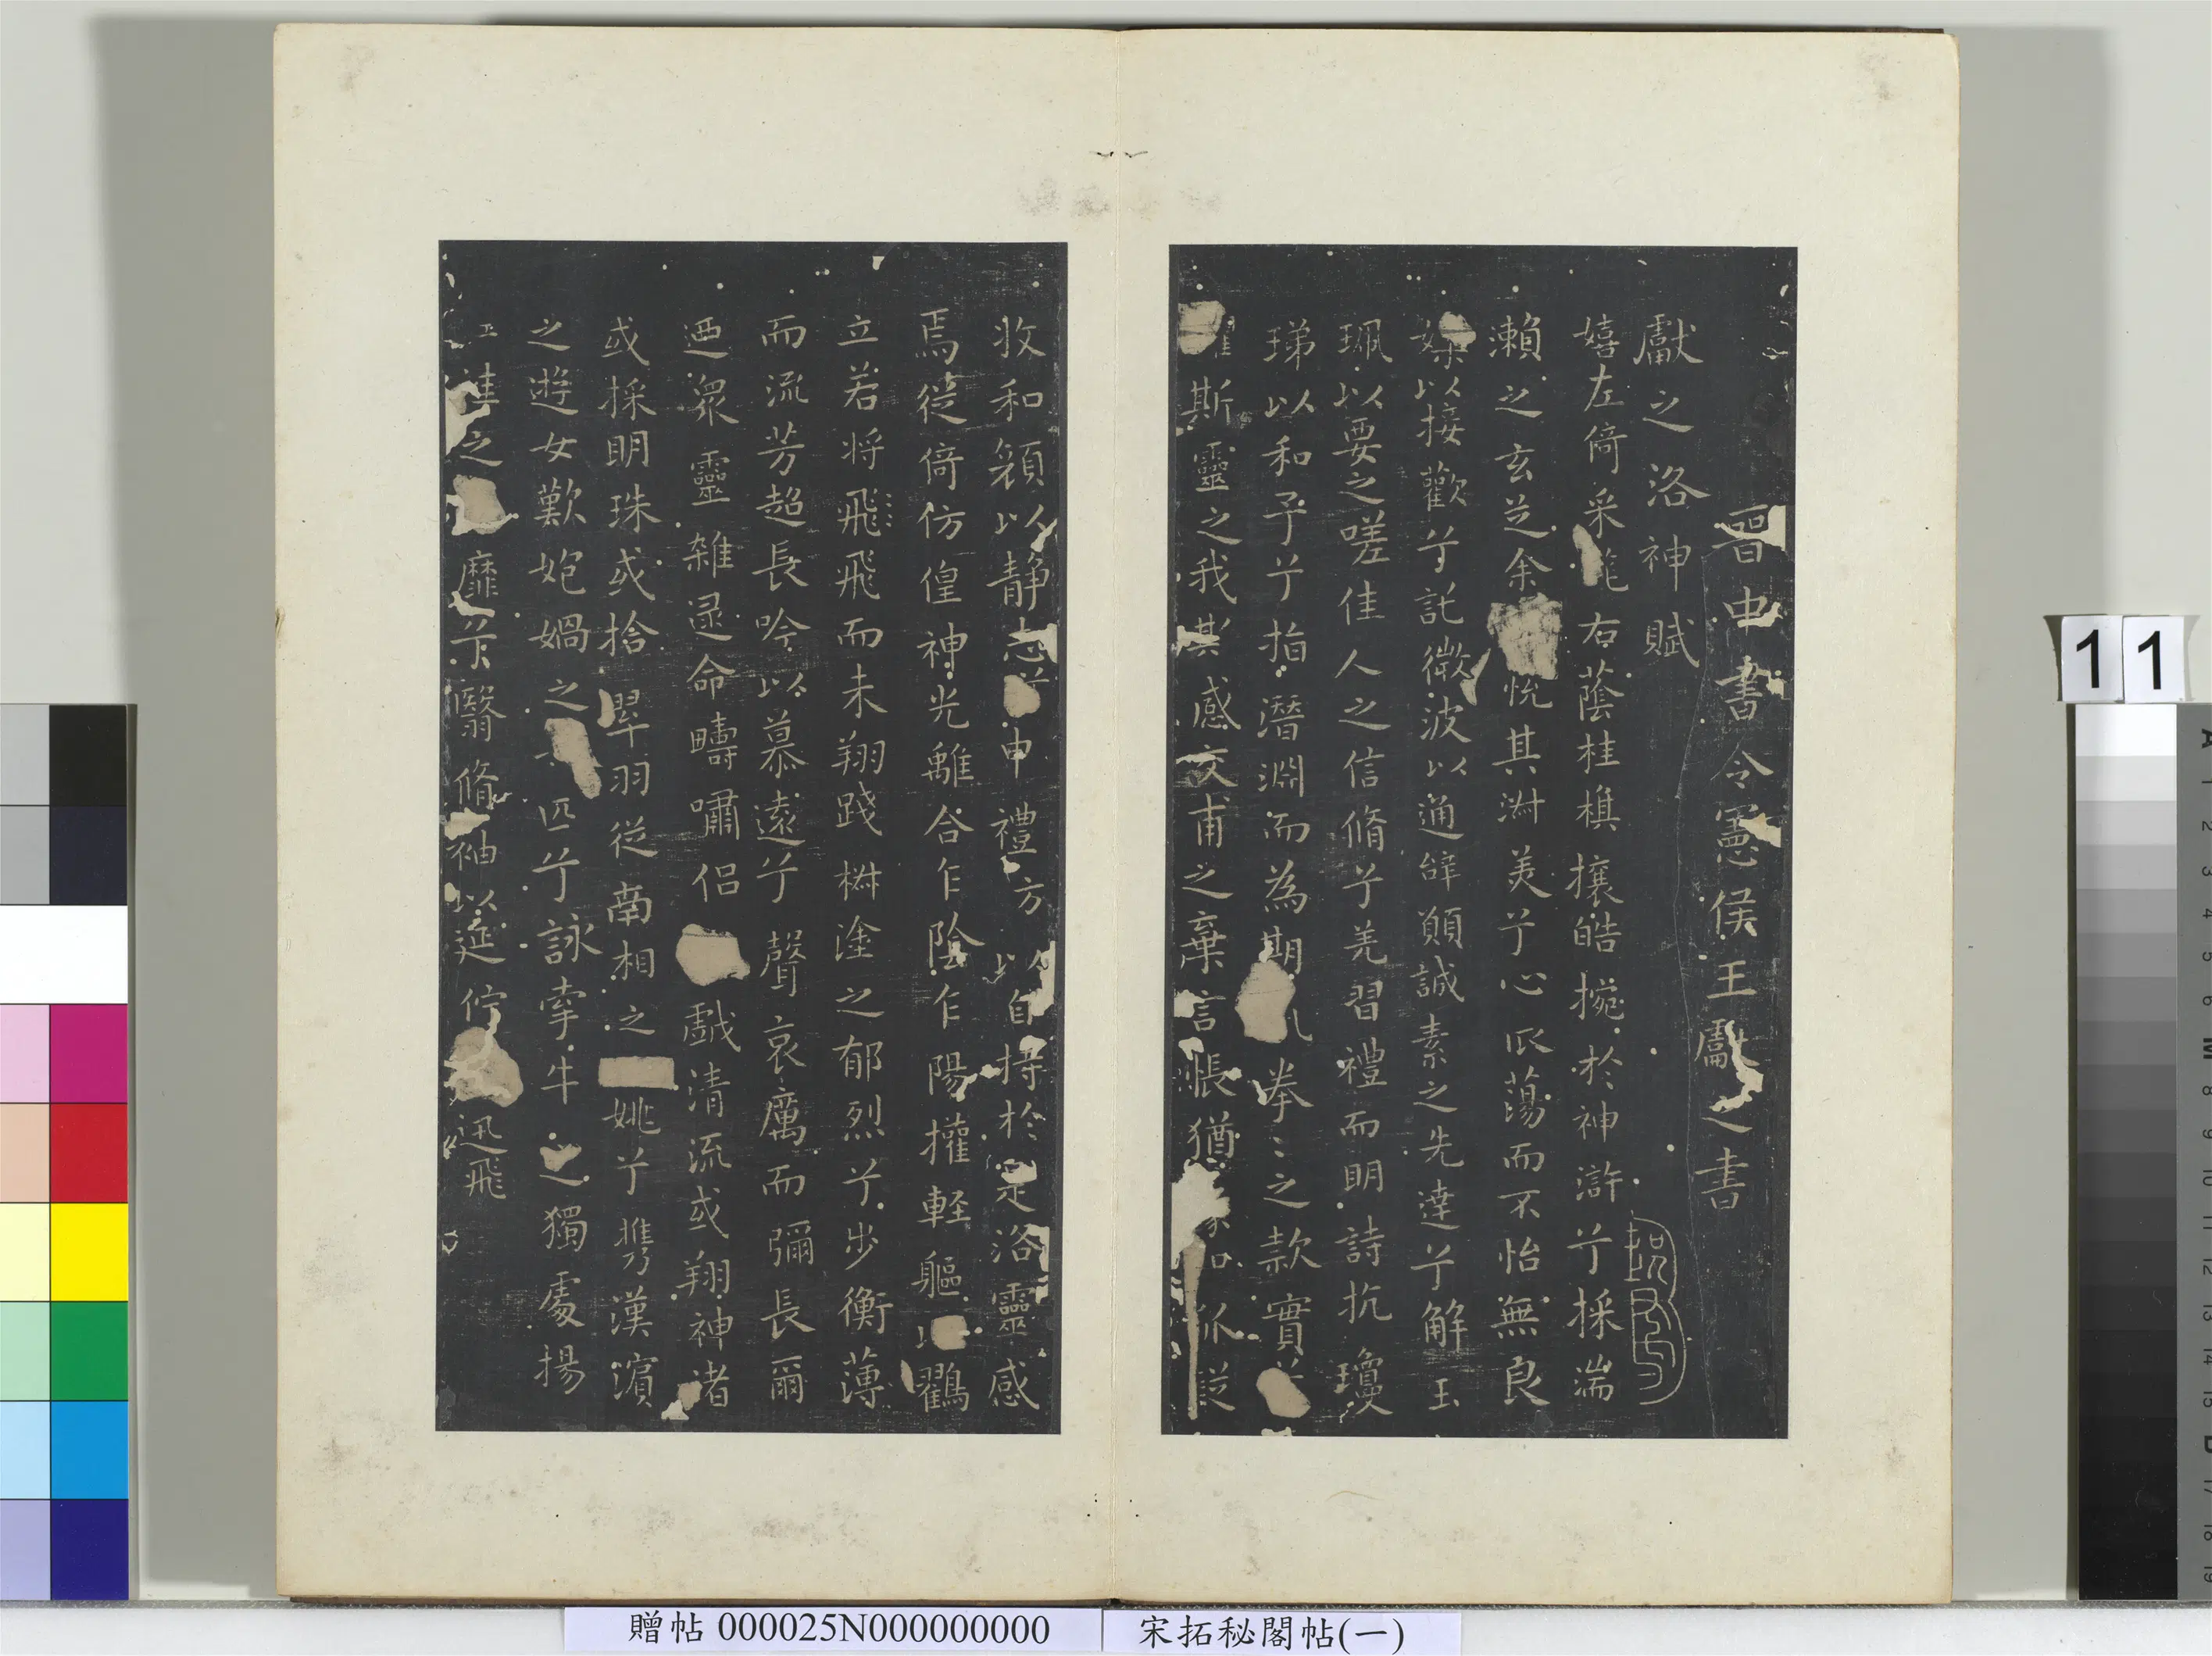 晉中書令憲侯王獻之書
獻之洛神賦
嬉左倚采旄右蔭桂棋攘皓捥於神滸兮採湍
瀨之玄芝余悅其淋美兮心㕟蕩而不怡無良
媒以接歡兮託微波以通辭願誠素之先達兮解玉
珮以要之嗟佳人之信脩兮羌習禮而明詩抗瓊
珶以和予兮指潛淵而為期拳〻之款實
斯靈之我其感交甫之棄言悵猶
收和顏以静志申禮方以自持於是洛靈感
焉徙倚仿偟神光離合乍陰乍陽擢軽軀鸛
立若将飛飛而未翔踐椒塗之郁烈兮步衡薄
而流芳超長吟以慕遠兮聲哀厲而彌長爾
迺眾靈雜遝命疇嘯侣戲清流或翔神渚
或採明珠或拾翠羽從南湘之姚兮攜漢濱
之遊女歎妑媧之匹兮詠牽牛之獨處揚
袿之靡兮翳脩袖以延佇迅飛
11
贈帖 000025N000000000
宋拓秘閣帖(一)